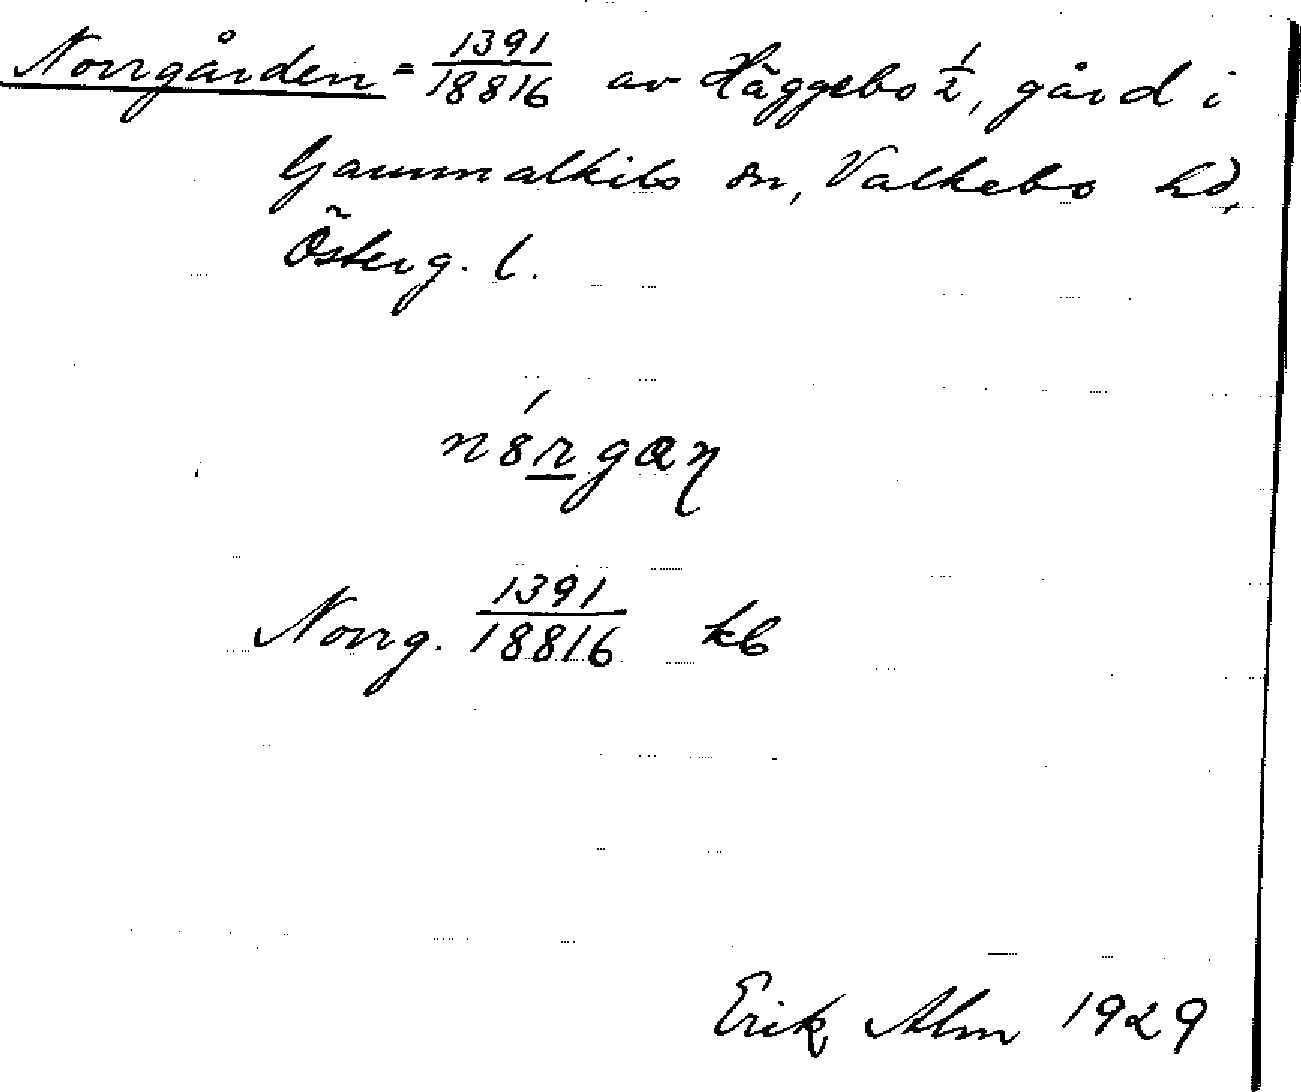 Norrgården = 1391/18816 av Häggebo 1/2, gård i
Gammalkils sn, Valkebo hd,
Österg. l.
Norrg. 1391/18816 kb
Erik Alm 1929